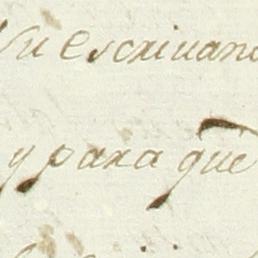 escrivano
y para que